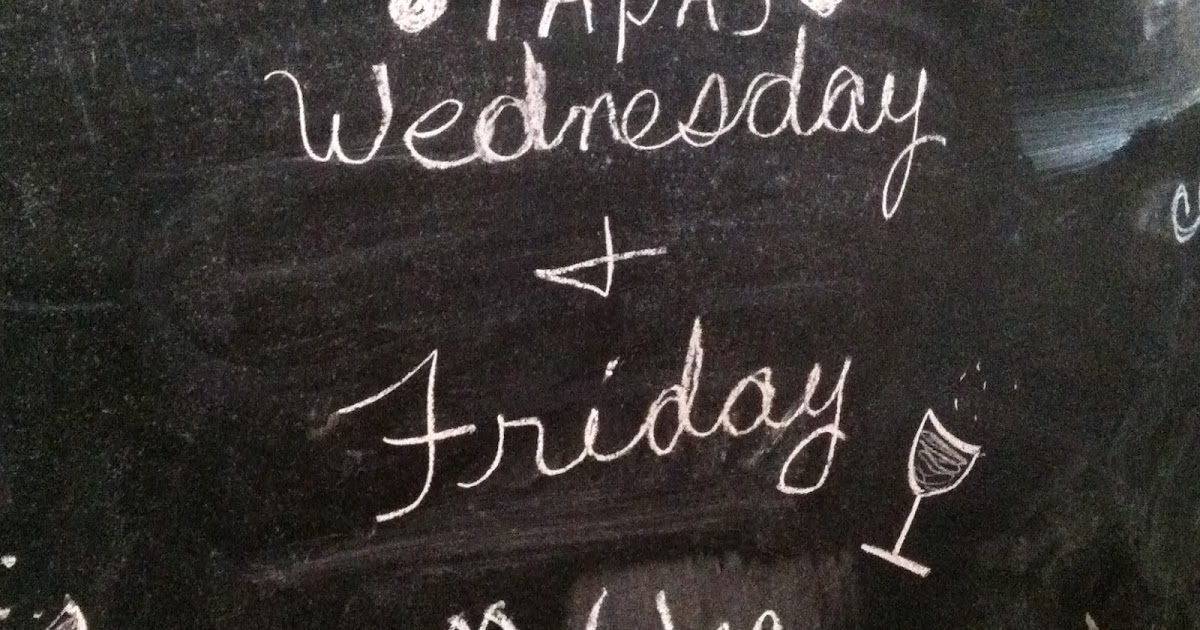 TAPAS
Wednesday
+
Friday